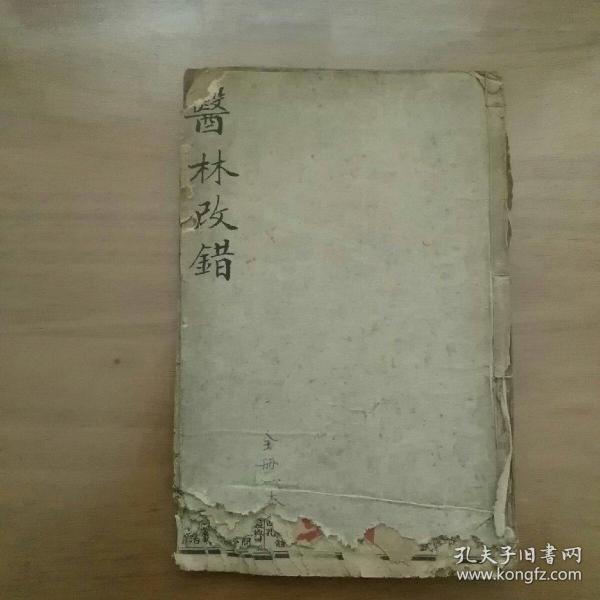 醫林改錯
全册一本
孔夫子旧书网
www.kongfz.com